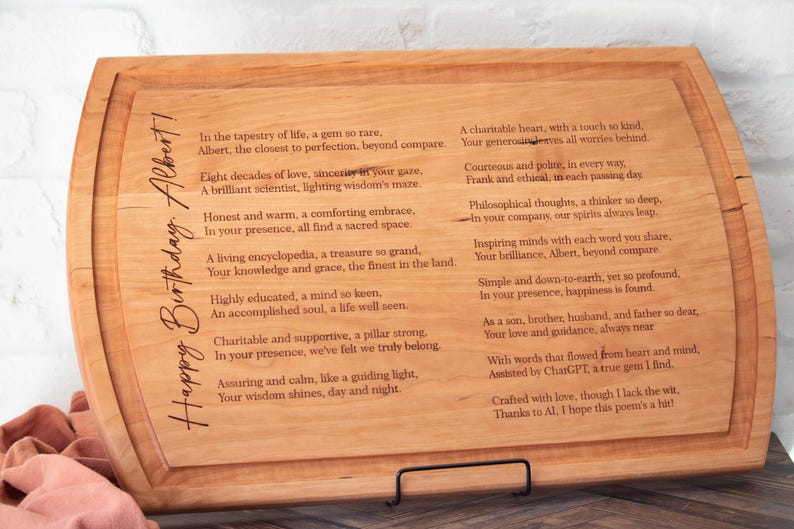 Happy Birthday, Albert!
In the tapestry of life, a gem so rare,
Albert, the closest to perfection, beyond compare.
Eight decades of love, sincerity in your gaze,
A brilliant scientist, lighting wisdom's maze.
Honest and warm, a comforting embrace,
In your presence, all find a sacred space.
A living encyclopedia, a treasure so grand,
Your knowledge and grace, the finest in the land.
Highly educated, a mind so keen,
An accomplished soul, a life well seen.
Charitable and supportive, a pillar strong,
In your presence, we've felt we truly belong.
Assuring and calm, like a guiding light,
Your wisdom shines, day and night.
A charitable heart, with a touch so kind,
Your generosity leaves all worries behind.
Courteous and polite, in every way,
Frank and ethical, in each passing day.
Philosophical thoughts, a thinker so deep,
In your company, our spirits always leap.
Inspiring minds with each word you share,
Your brilliance, Albert, beyond compare.
Simple and down-to-earth, yet so profound,
In your presence, happiness is found.
As a son, brother, husband, and father so dear,
Your love and guidance, always near
With words that flowed from heart and mind,
Assisted by ChatGPT, a true gem I find.
Crafted with love, though I lack the wit,
Thanks to AI, I hope this poem's a hit!